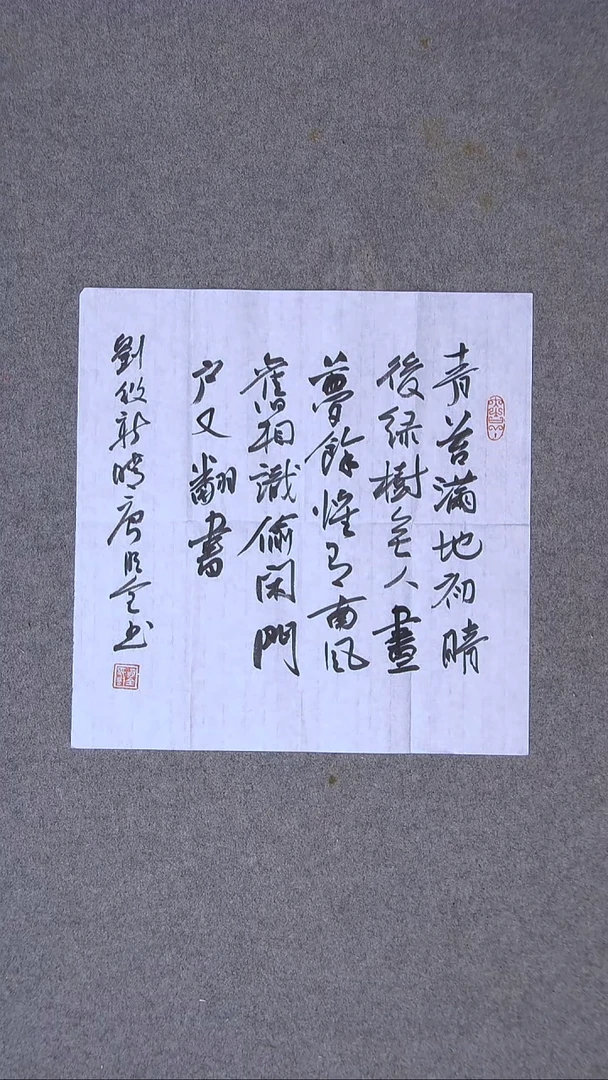 青苔滿地初晴
後綠樹無人晝
夢餘惟有南風
舊相識偷開門
户又翻書
劉攽新晴唐全书